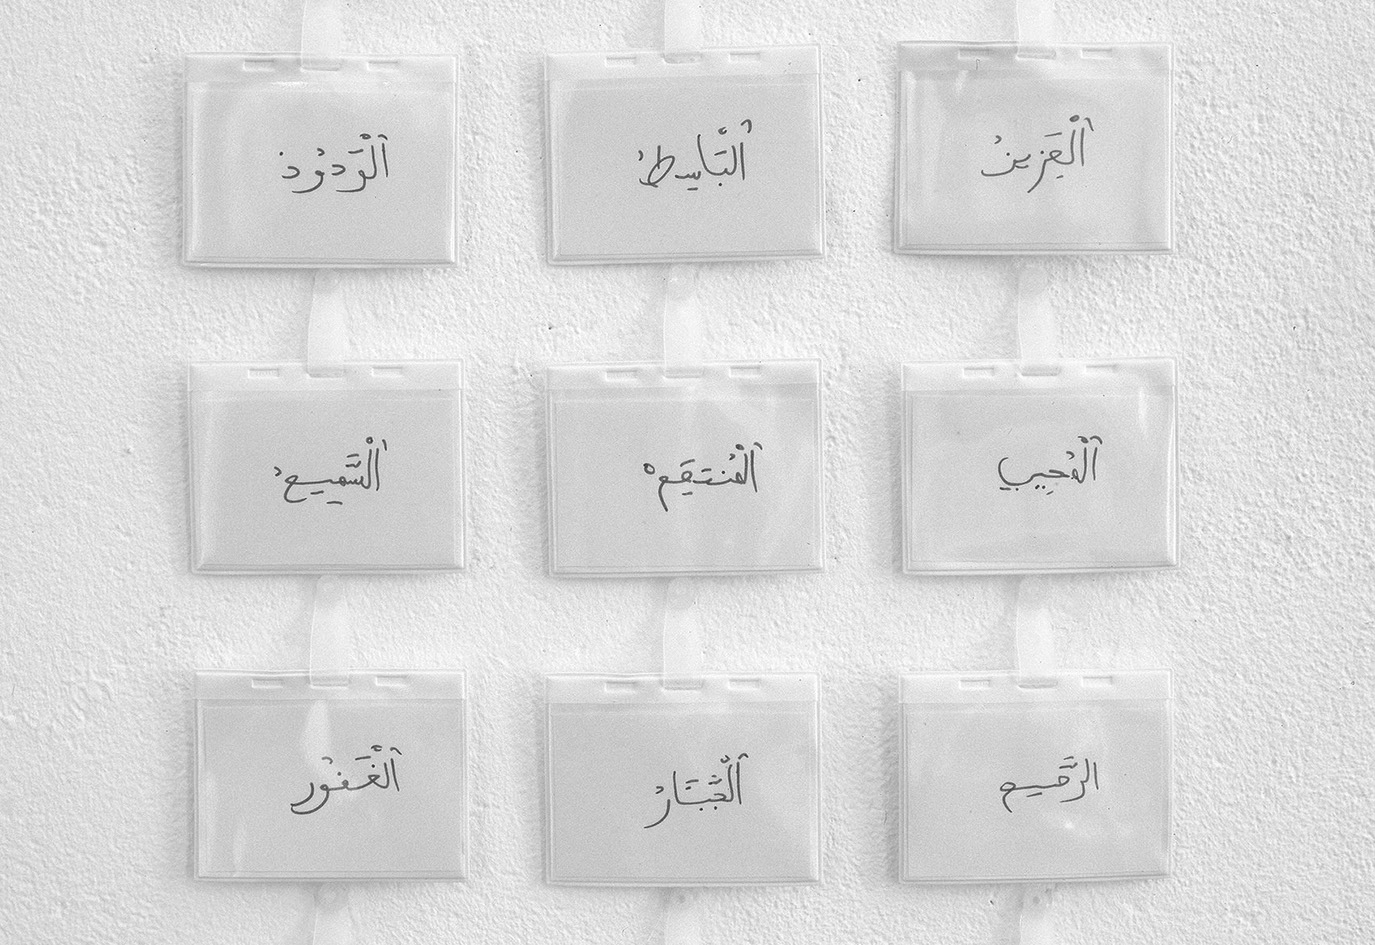 ٱلْعَزِيزُ
ٱلْبَاسِطُ
ٱلْوَدُودُ
ٱلْمُجِيبُ
ٱلْمُنتَقِمُ
ٱلْسَّمِيعُ
الرَّحِيم
ٱلْجَبَّارُ
ٱلْغَفُور